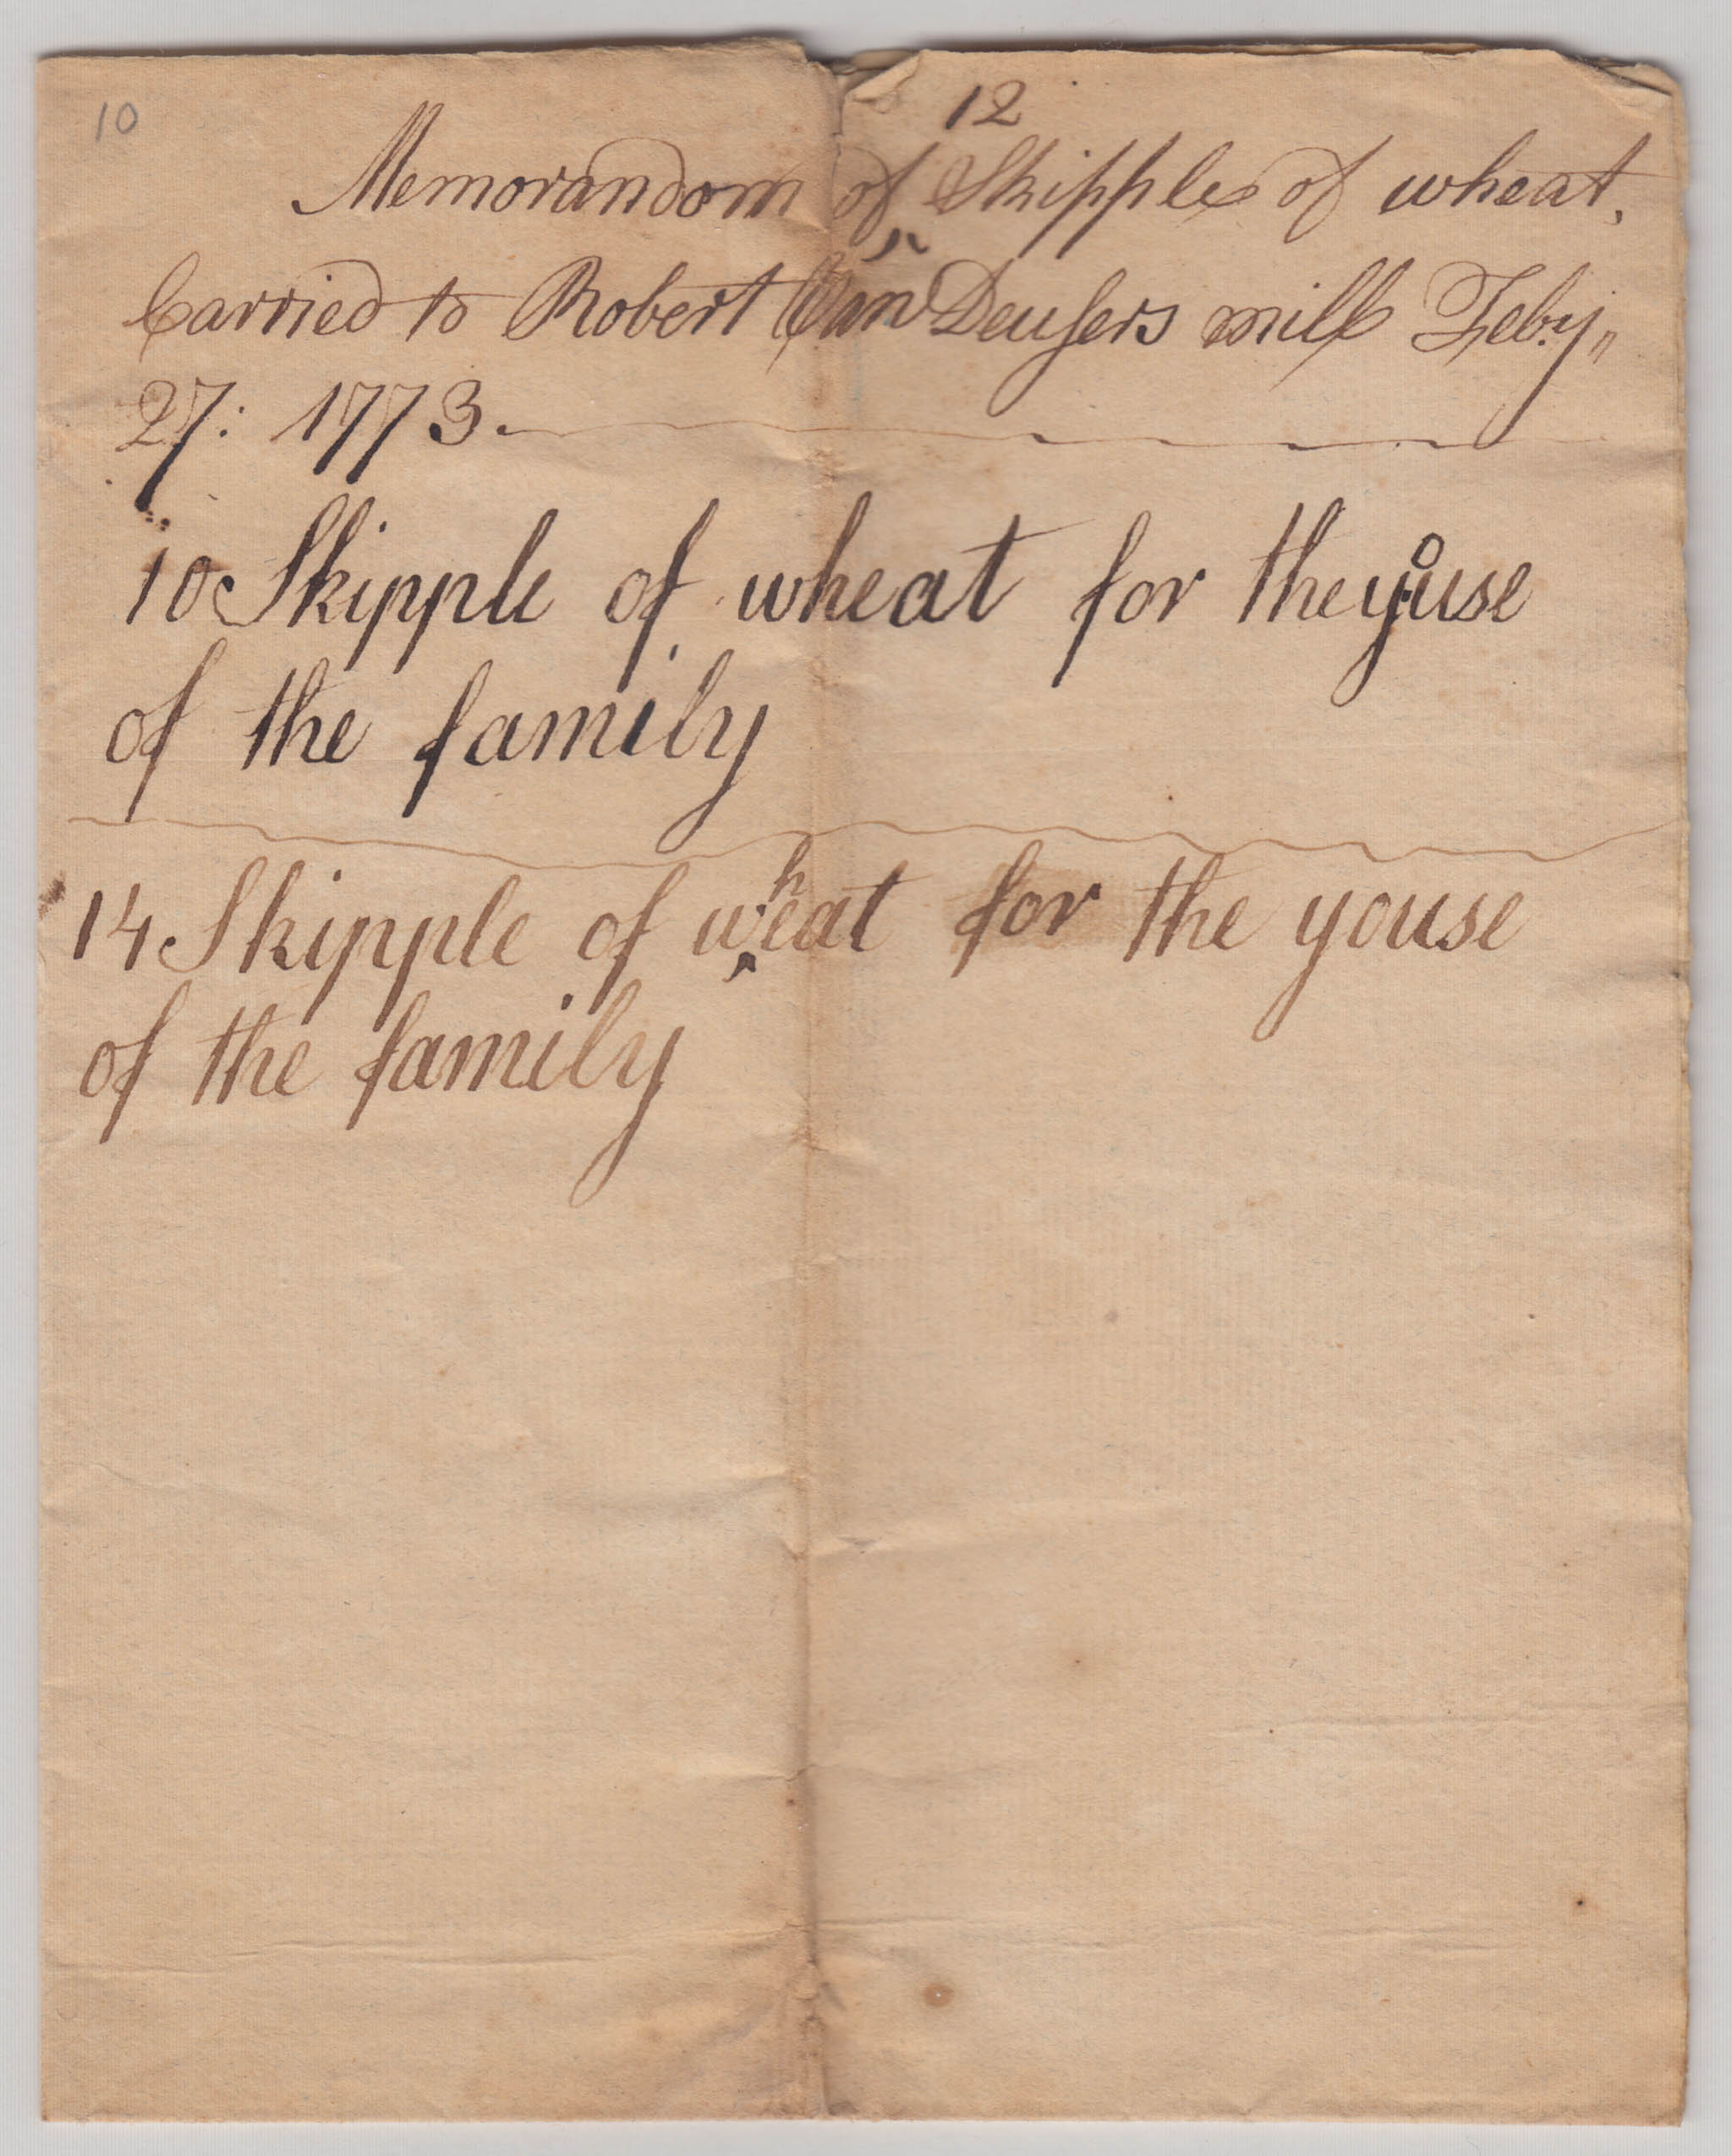 10
Memorandom of 12 Skipple of wheat,
Carried to Robert Van Deusers mill Feby"
27: 1773.
10 Skipple of wheat for the youse
of the family
14 Skipple of wheat for the youse
of the family